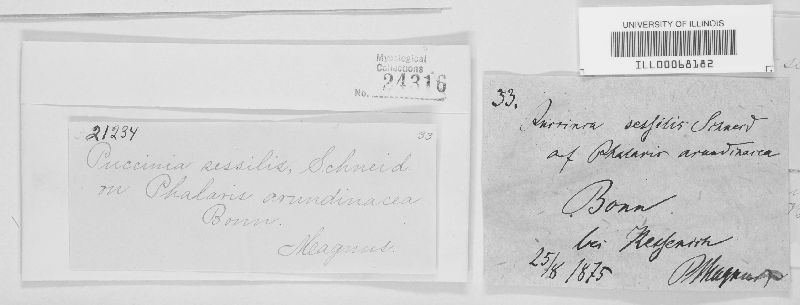 UNIVERSITY OF ILLINOIS
ILL00068182
Mycological
Collections
No. 24316
21234 33
Puccinia sessilis, Schneid
on Phalaris arundinacea
Bonn.
Magnus.
33.
Puccinia sessilis Schneid
auf Phalaris arundinacea
Bonn
bei Kessenich
25/8 1875 P Magnus